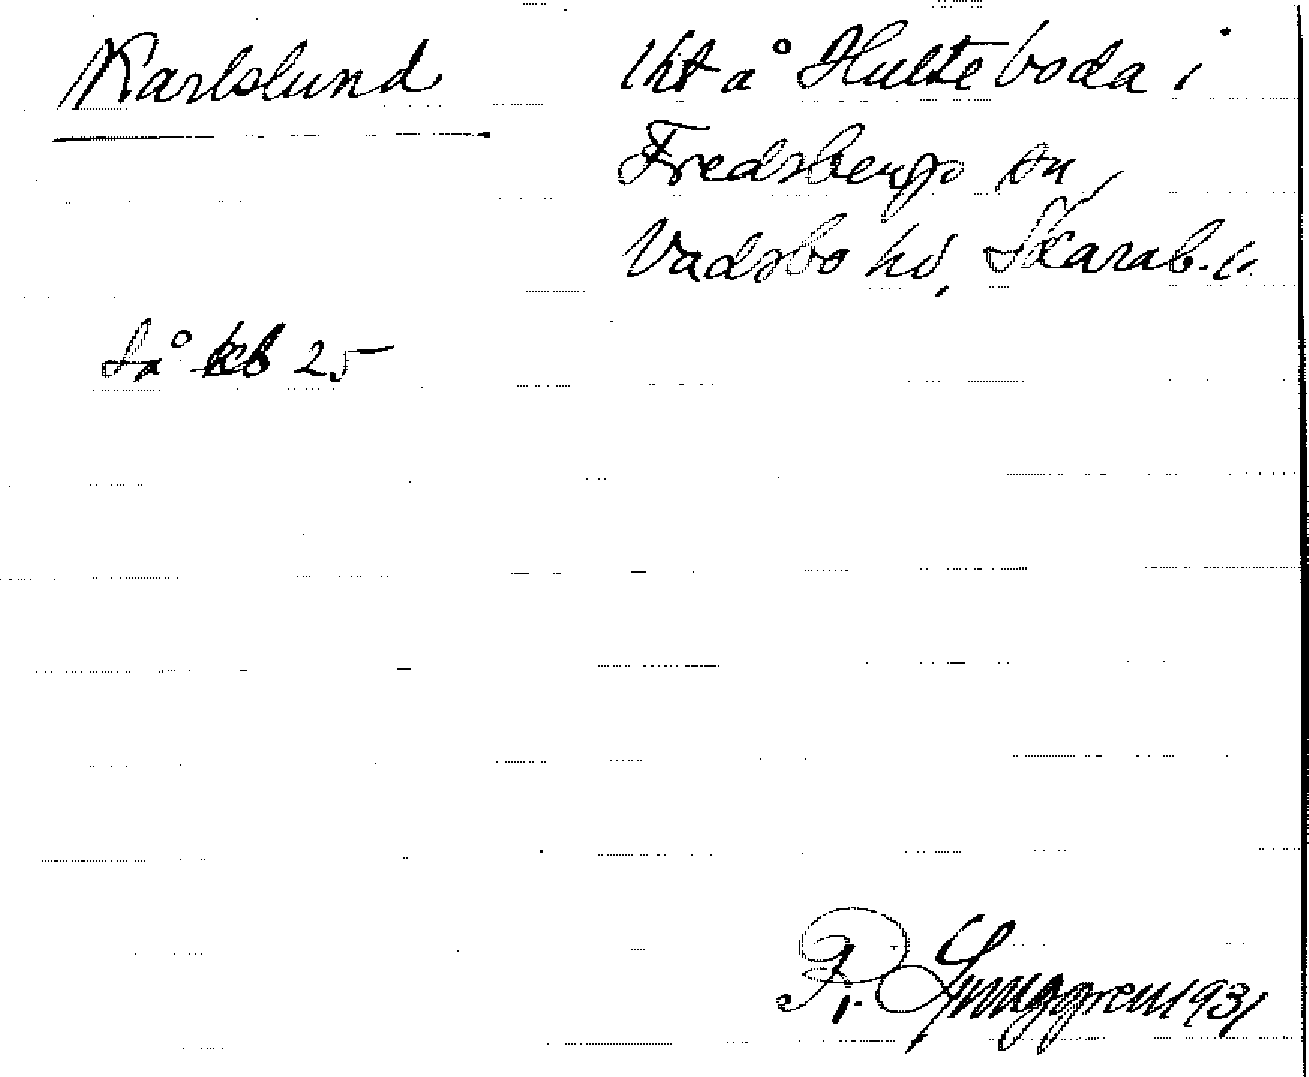 Karlslund
lht å Hulteboda i
Fredsbergs sn,
Vadsbo hd, Skarab. l.
Så kb 25
R. Ljunggren 1931